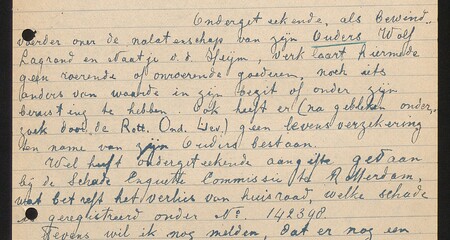 Ondergeteekende, als Bewind-
voerder over de nalatenschap van zijn Ouders Wolf
Lagrand en Naatje v.d. Heijm, verklaart hiermede
geen roerende of onroerende goederen, noch iets
anders van waarde in zijn bezit of onder zijn
berusting te hebben. Ook heeft er (na gebleken onder-
zoek door de Rott. Ond. Lev.) geen levensverzekering
ten name van zijn Ouders bestaan.
Wel heeft ondergeteekende aangifte gedaan
bij de Schade Enquette Commissie te Rotterdam,
wat betreft het verlies van huisraad, welke schade
is geregistreerd onder No. 142398.
Tevens wil ik nog melden, dat er nog een